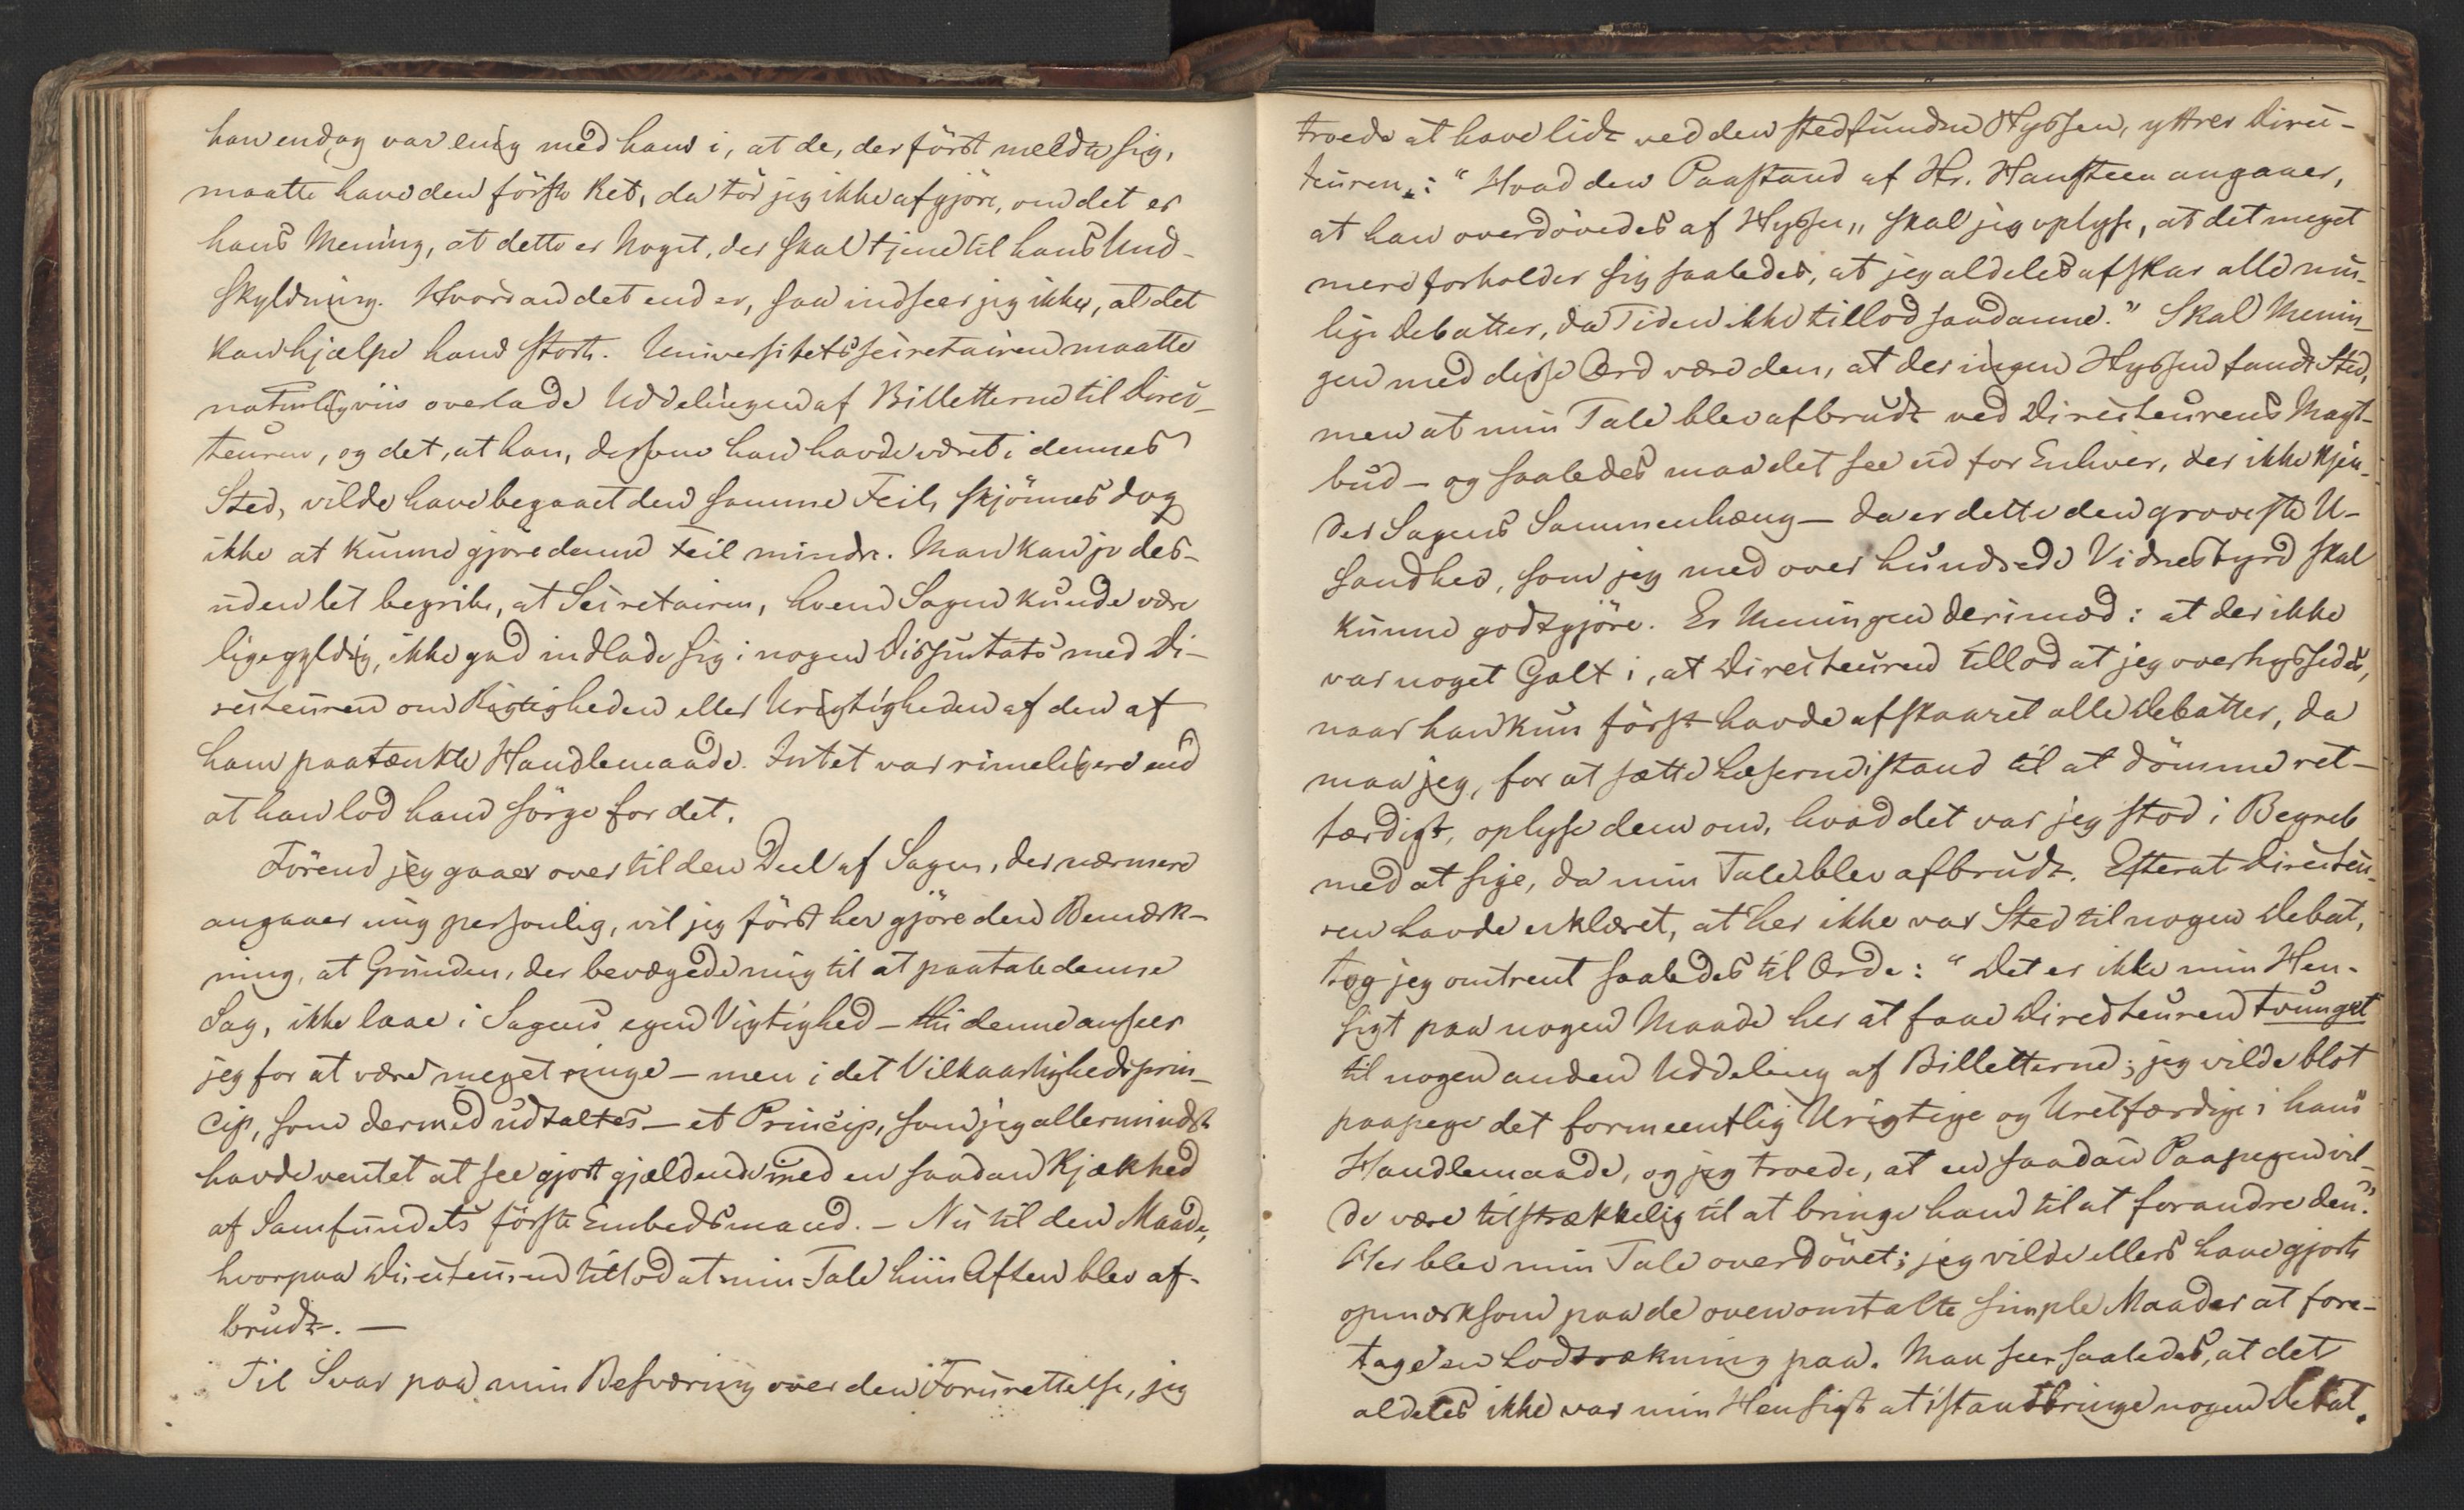 han endog var enig med ham i, at de, der først meldte sig,
maatte have den første Ret, da tør jeg ikke afgjöre, om det er
hans Mening, at dette er Noget, der skal tjene til hans Und-
skyldning. Hvordan det end er, saa indseer jeg ikke, at det
kan hjælpe ham stort. Universitetssecretairen maatte
naturligviis overlade Uddelingen af Billetterne til Direc-
teuren, og det, at han, dersom han havde været i dennes
Sted, vilde have begaaet den samme Feil, skjönnes dog
ikke at kunne gjöre denne Feil mindre. Man kan jo des-
uden let begribe, at Secretairen, hvem Sagen kunde være
ligegyldig, ikke gad indlade sig i nogen Disputats med Di-
recteuren om Rigtigheden eller Urigtigheden af den af
ham paatænkte Handlemaade. Intet var rimeligere end
at han lod ham sörge for det.
Förend jeg gaaer over til den Deel af Sagen, der nærmere
angaaer mig personlig, vil jeg först her gjöre den Bemærk-
ning, at Grunden, der bevægede mig til at paatale denne
Sag, ikke laae i Sagens egen Vigtighed – thi denne anseer
jeg for at være meget ringe – men i det Vilkaarlighedsprin-
cip, som dermed udtaltes – et Princip, som jeg allermindst
havde ventet at see gjort gjældende med en saadan Kjækhed
af Samfundets förste Embedsmand. – Nu til den Maade,
hvorpaa Directeuren tillod at min Tale hiin Aften blev af-
brudt. –
Til Svar paa min Besværing over den Forurettelse, jeg
troede at have lidt ved den stedfundne Hyssen, yttrer Direc-
teuren: "Hvad den Paastand af Hr. Hansteen angaaer,
at han overdövedes af Hyssen" skal jeg oplyse, at det meget
mere forholder sig saaledes, at jeg aldeles afskar alle mu-
lige Debatter, da Tiden ikke tillod saadanne." Skal Menin-
gen med disse Ord være den, at der ingen Hyssen fandt Sted,
men at min Tale blev afbrudt ved Directeurens Magt-
bud – og saaledes maa det see ud for Enhver, der ikke kjen-
der Sagens Sammenhæng – da er dette den groveste U-
sandhed, som jeg med over hundrede Vidnesbyrd skal
kunne godtgjöre. Er Meningen derimod: at der ikke
var noget Galt i, at Directeuren tillod at jeg overhyssedes,
naar han kun först havde afskaaret alle Debatter, da
maa jeg, for at sætte Læserne istand til at dömme ret-
færdigt, oplyse dem om, hvad det var jeg stod i Begreb
med at sige, da min Tale blev afbrudt. Efterat Directeu-
ren havde erklæret, at her ikke var Sted til nogen Debat,
tog jeg omtrent saaledes til Orde: "Det er ikke min Hen-
sigt paa nogen Maade her at faae Directeuren tvunget
til nogen anden Uddeling af Billetterne; jeg vilde blot
paapege det formeentlig Urigtige og Uretfærdige i hans
Handlemaade, og jeg troede, at en saadan Paapegen vil-
de være tilstrækkelig til at bringe ham til at forandre den."
Her blev min Tale overdövet; jeg vilde ellers have gjort
opmærksom paa de ovenomtalte simple Maader at fore-
tage en Lodtrækning paa. Man seer saaledes, at det
aldeles ikke var min Hensigt at istandbringe nogen Debat.